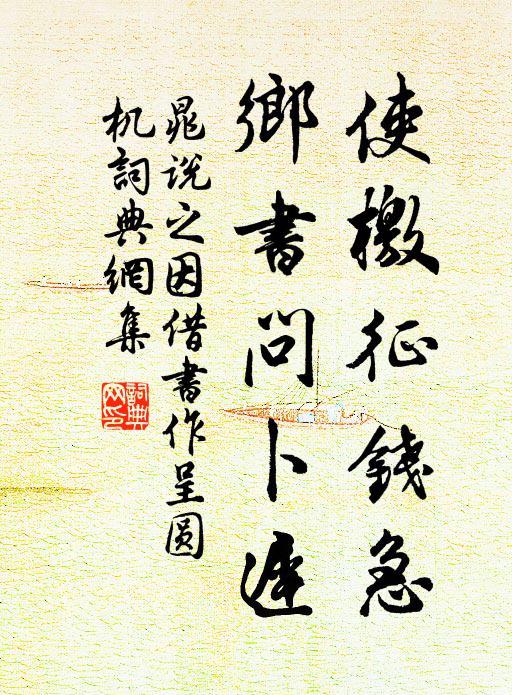 使檄征錢急
鄉書問卜遲
晁說之因借書作呈圓
机詞典網集
詞典
网印